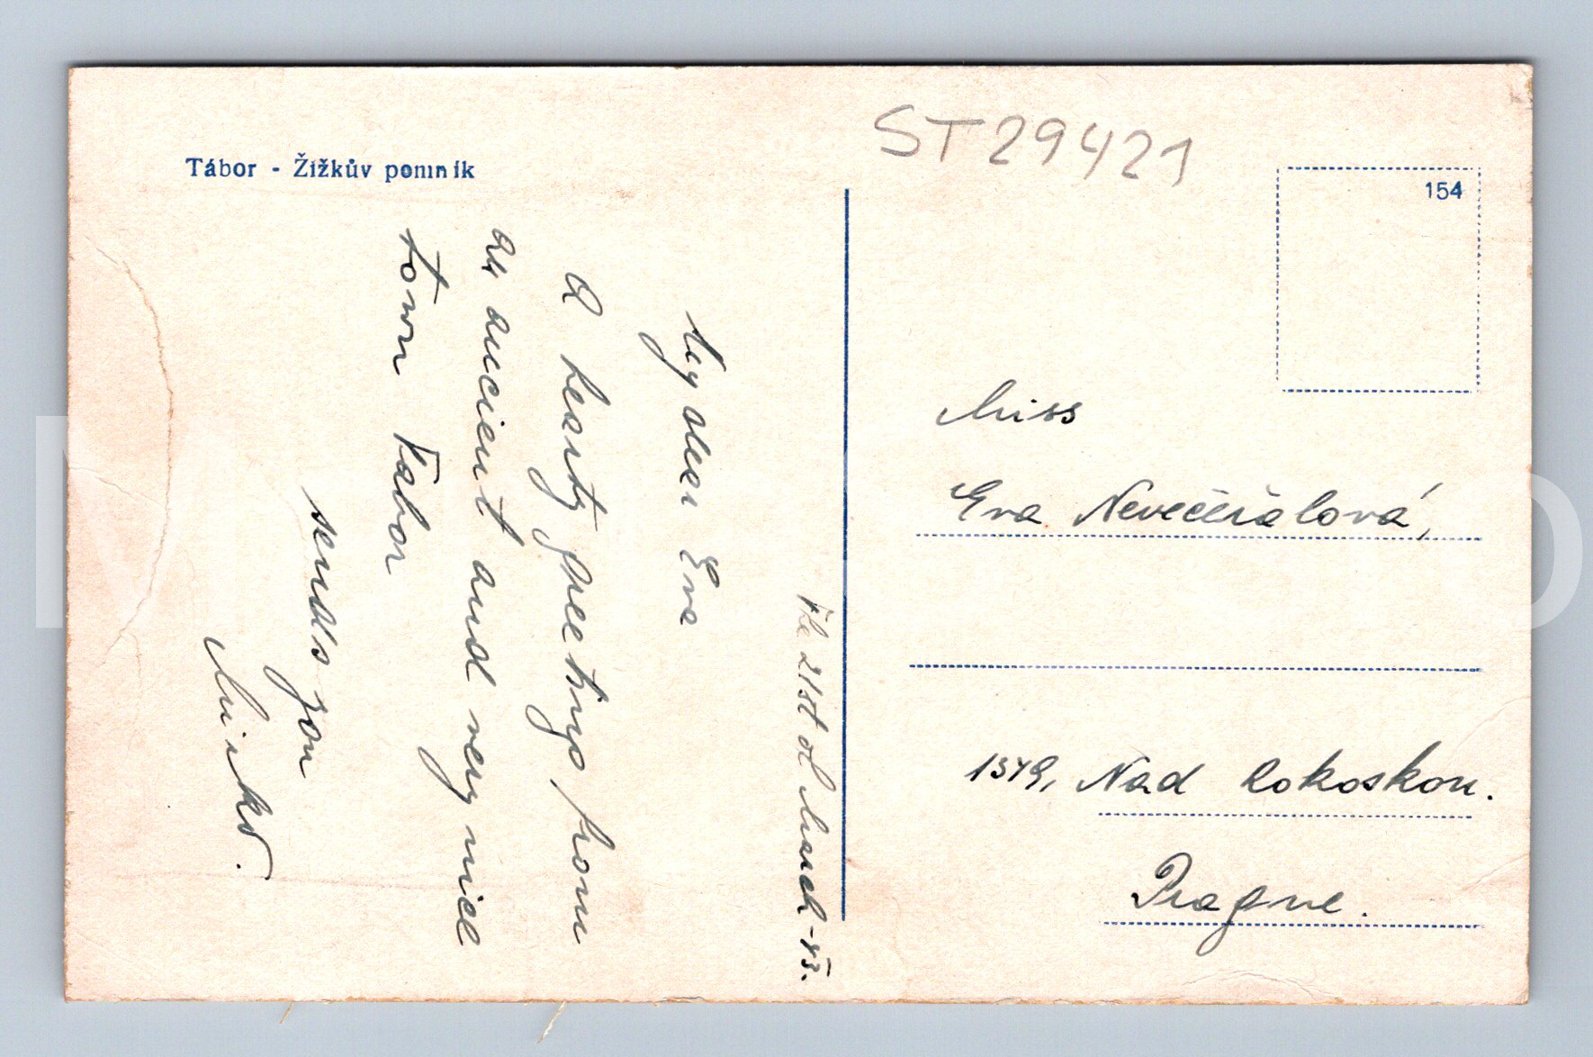 Tábor - Žižkův pomník
ST29421
154
The 21st of March -43.
My dear Eva
A hearty greetings from
an ancient and very nice
town Tabor
sends you
Mirko.
Miss
Eva Nevečeřalová,
1579, Nad Rokoskou.
Prague.